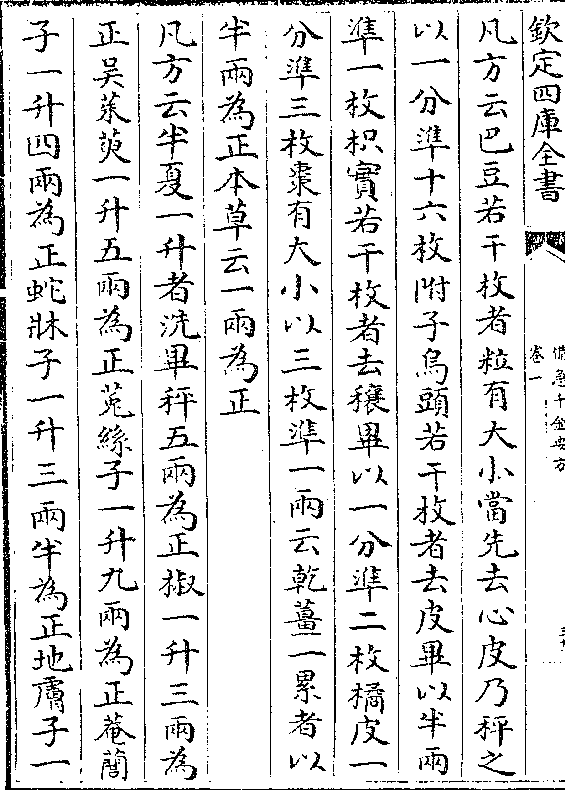 欽定四庫全書
備急千金要方
卷一
凡方云巴豆若干枚者粒有大小當先去心皮乃秤之
以一分準十六枚附子烏頭若干枚者去皮畢以半兩
準一枚枳實若干枚者去穰畢以一分準二枚橘皮一
分準三枚棗有大小以三枚準一兩云乾薑一累者以
半兩為正本草云一兩為正
凡方云半夏一升者洗畢秤五兩為正椒一升三兩為
正吳茱萸一升五兩為正菟絲子一升九兩為正菴䕡
子一升四兩為正蛇牀子一升三兩半為正地膚子一